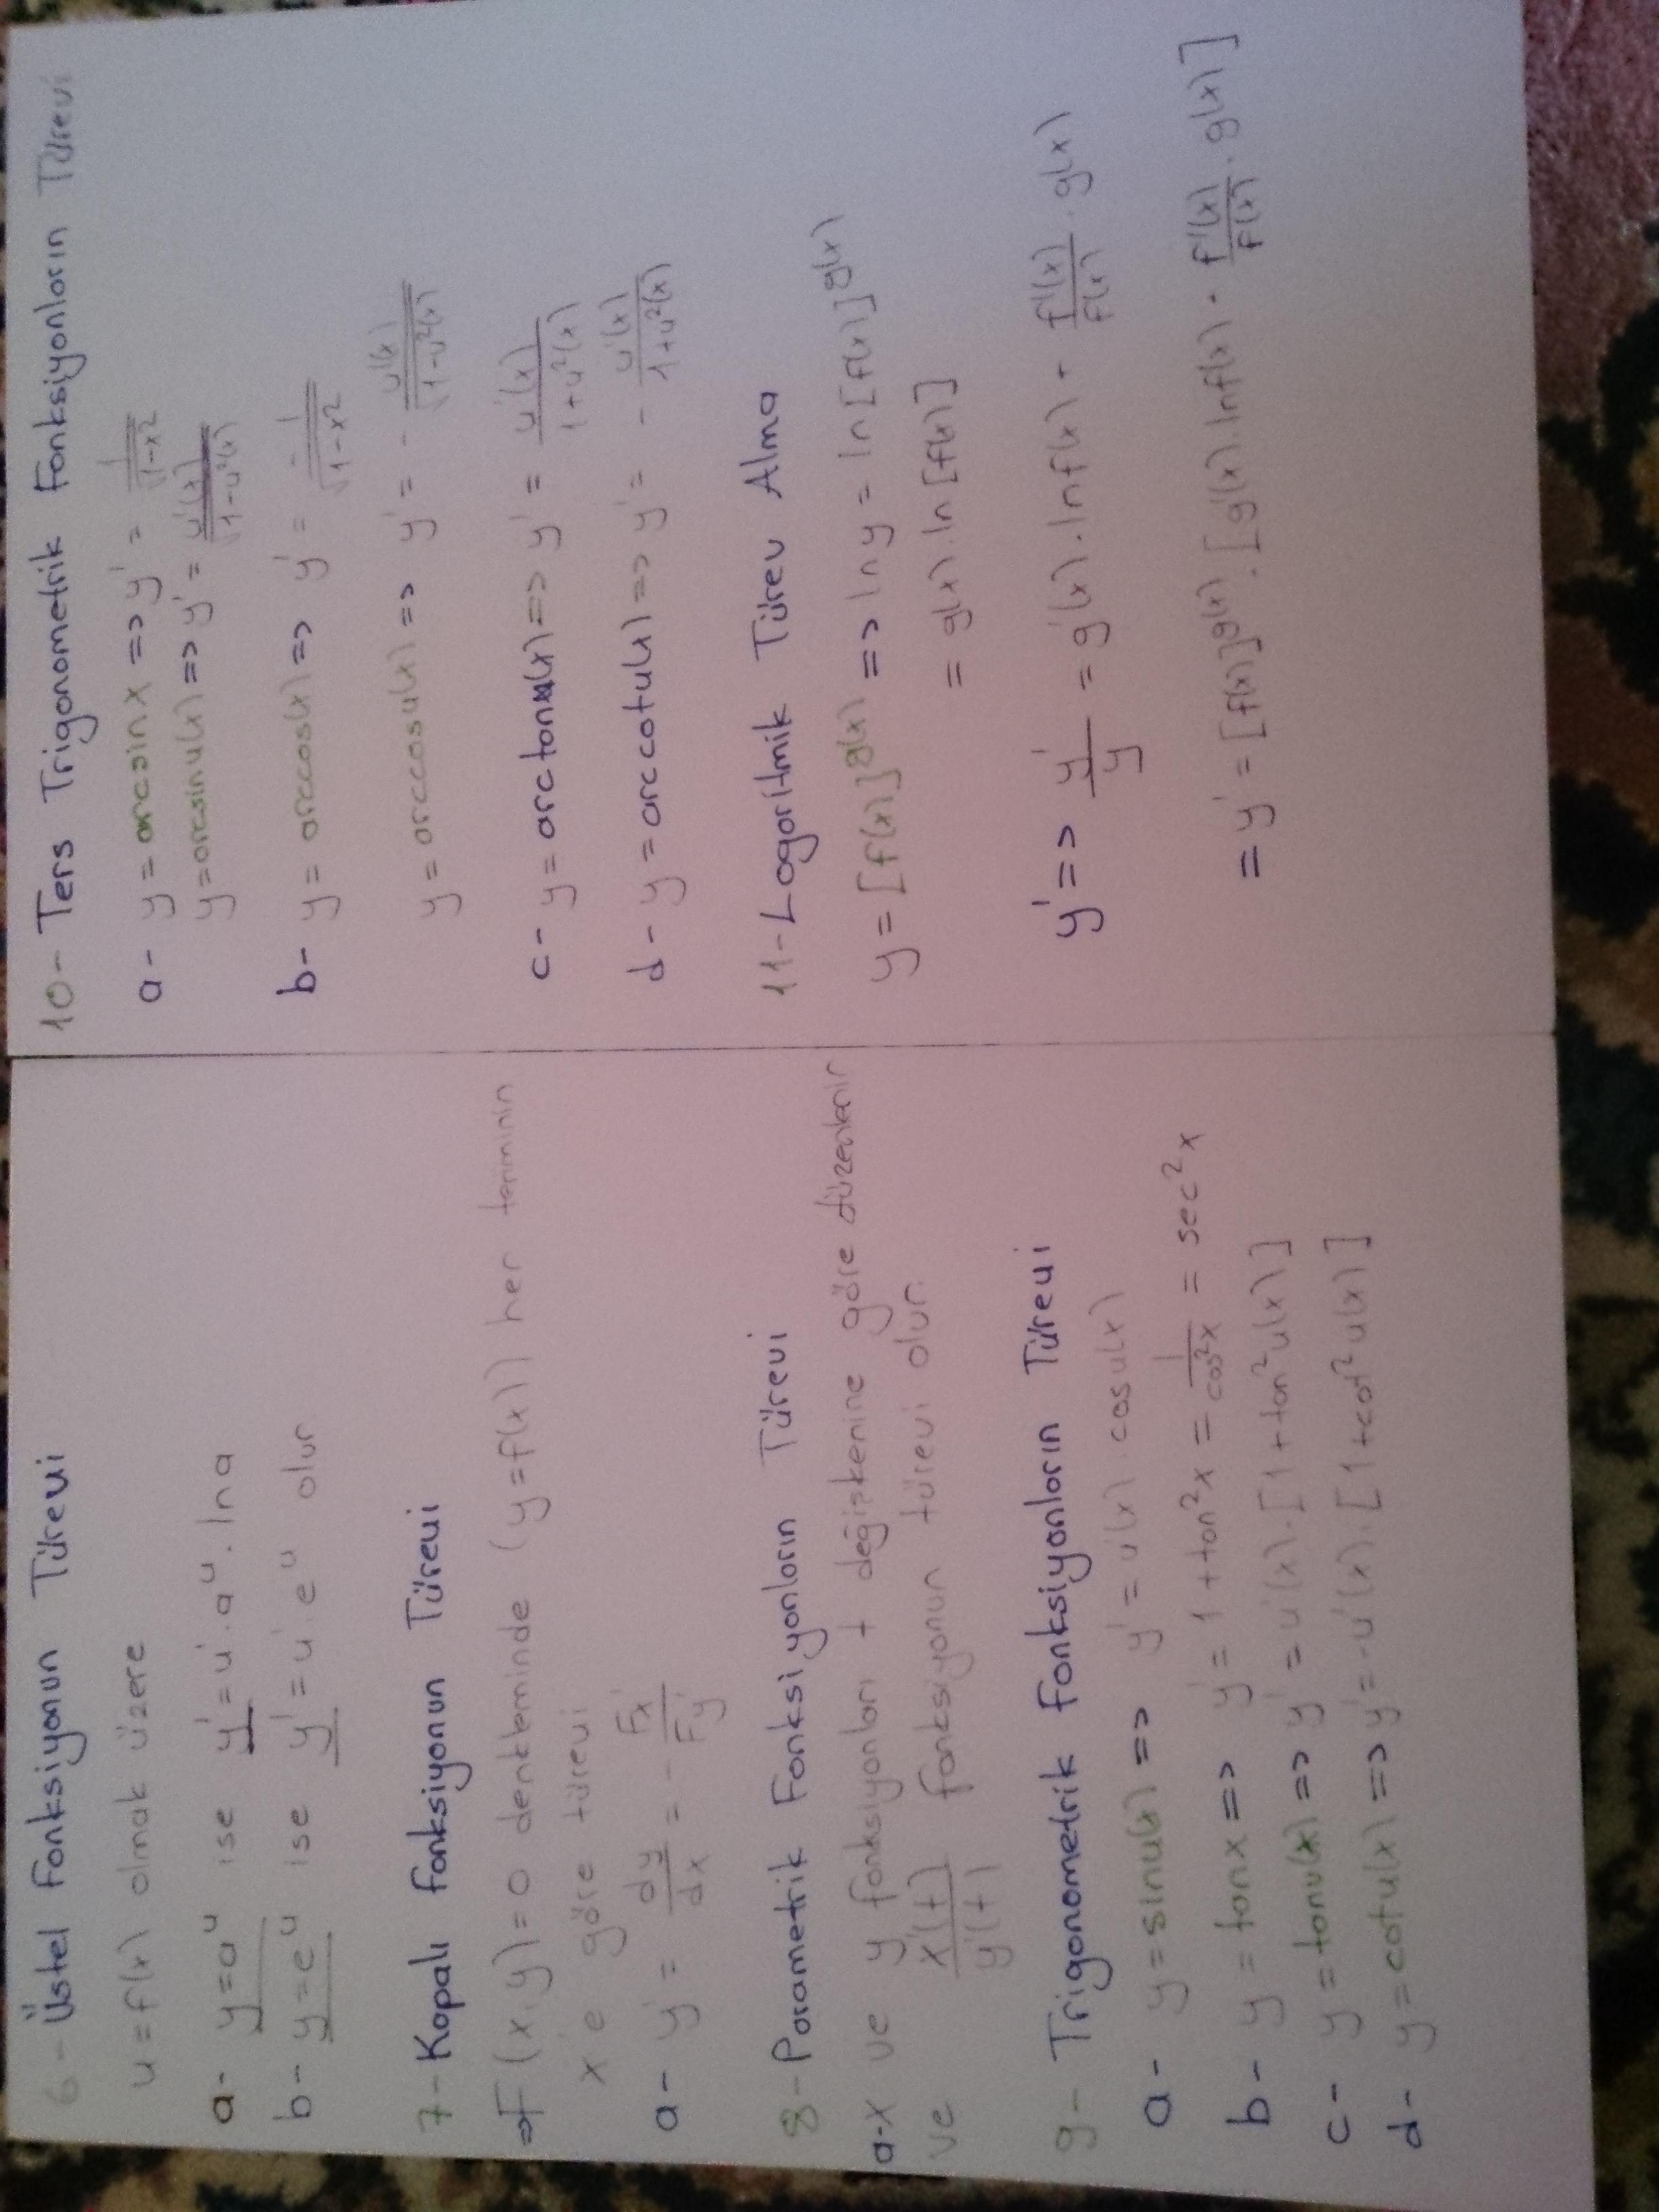 6- Üstel Fonksiyonun Türevi
u = f(x) olmak üzere
a- y=a^u ise y'=u'.a^u.lna
b- y=e^u ise y'=u'.e^u olur
7- Kapalı Fonksiyonun Türevi
⇒F(x,y)=0 denkleminde (y=f(x)) her teriminin
x'e göre türevi
a- y' = dy/dx = - Fx'/Fy'
8- Parametrik Fonksiyonların Türevi
a-x ve y fonksiyonları t değişkenine göre düzenlenir
ve x'(t)/y'(t) fonksiyonun türevi olur.
9- Trigonometrik Fonksiyonların Türevi
a- y=sinu(x) => y'=u'(x).cosu(x)
b- y=tanx => y'=1+tan²x = 1/cos²x = sec²x
c- y=tanu(x) => y'=u'(x).[1+tan²u(x)]
d- y=cotu(x) => y'=-u'(x).[1+cot²u(x)]
10- Ters Trigonometrik Fonksiyonların Türevi
a- y=arcsinx => y' = 1/√1-x²
y=arcsinu(x) => y' = u'(x)/√1-u²(x)
b- y=arccos(x) => y' = -1/√1-x²
y=arccosu(x) => y' = - u'(x)/√1-u²(x)
c- y=arctanu(x) => y' = u'(x)/1+u²(x)
d- y=arccotu(x) => y' = - u'(x)/1+u²(x)
11- Logaritmik Türev Alma
y=[f(x)]^g(x) => lny = ln[f(x)]^g(x)
= g(x).ln[f(x)]
y' => y'/y = g'(x).lnf(x) + f'(x)/f(x) . g(x)
= y' = [f(x)]^g(x).[g'(x).lnf(x) + f'(x)/f(x) . g(x)]